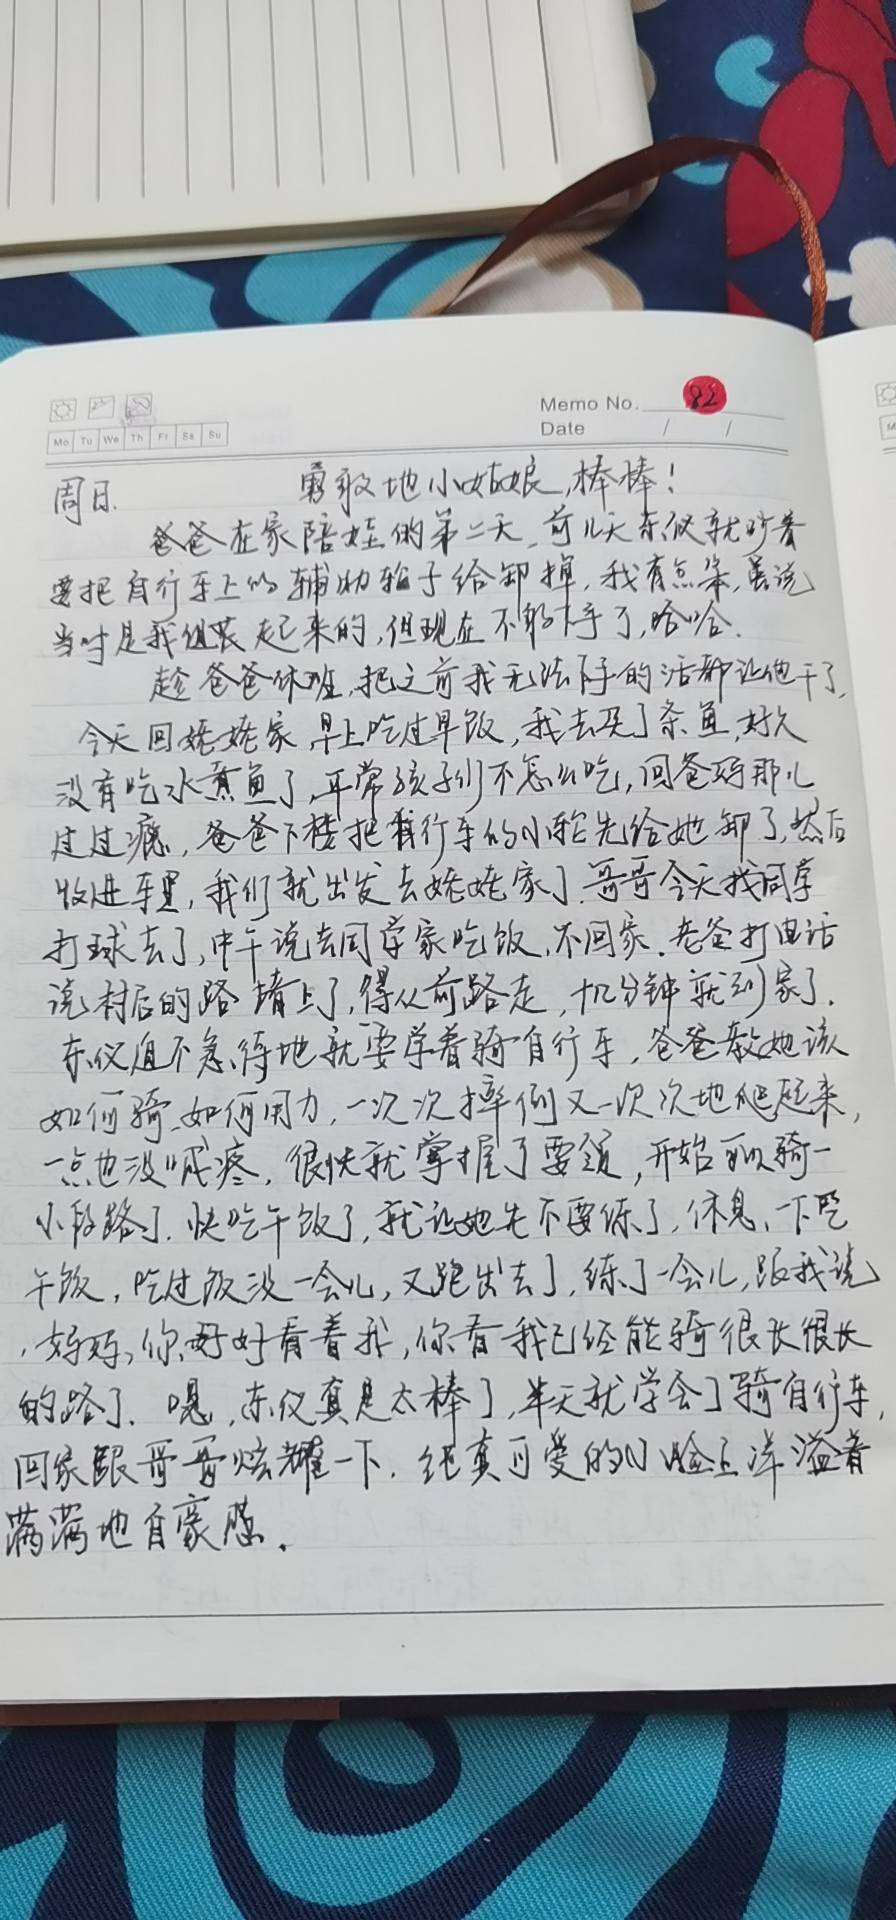 Memo No. 82
Mo Tu We Th Fr Sa Su
Date / /
周日. 勇敢地小姑娘,棒棒!
爸爸在家陪娃的第二天,前几天东仪就吵着
要把自行车上的辅助轮子给卸掉,我有点笨,虽说
当时是我组装起来的,但现在不能下手了,哈哈.
趁爸爸休班,把之前我无法下手的活都让他干了,
今天回姥姥家,早上吃过早饭,我去买了条鱼,好久
没有吃水煮鱼了,平常孩子们不怎么吃,回爸妈那儿
过过瘾,爸爸下楼把自行车的小轮先给她卸了,然后
收进车里,我们就出发去姥姥家了.哥哥今天找同学
打球去了,中午说去同学家吃饭,不回家.老爸打电话
说村后的路堵上了,得从前路走,十几分钟就到家了.
东仪迫不急待地就要学着骑自行车,爸爸教她该
如何骑,如何用力,一次次摔倒又一次次地爬起来,
一点也没喊疼,很快就掌握了要领,开始可以骑一
小段路了.快吃午饭了,就让她先不要练了,休息一下吃
午饭,吃过饭没一会儿,又跑出去了,练了一会儿,跟我说
,妈妈,你好好看着我,你看我已经能骑很长很长
的路了.嗯,东仪真是太棒了,半天就学会了骑自行车,
回家跟哥哥炫耀一下.纯真可爱的小脸上洋溢着
满满地自豪感.